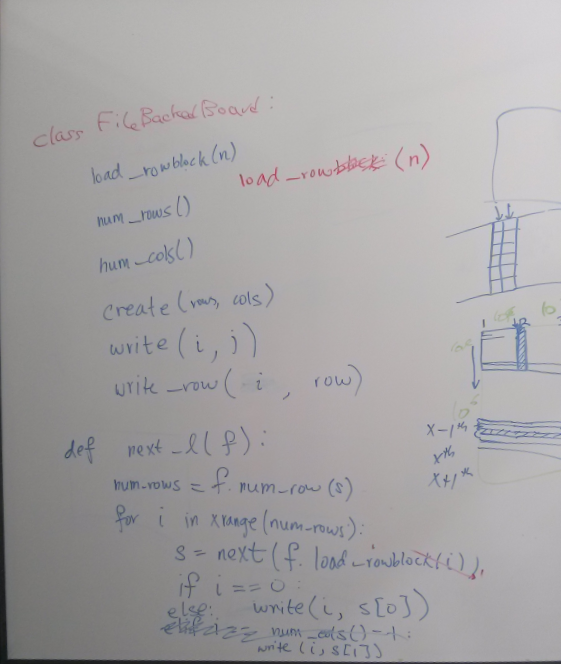 class FileBackedBoard:
load_rowblock(n)
load_row (n)
num_rows()
num_cols()
create(rows, cols)
write(i, j)
write_row(i, row)
def next_l(f):
num_rows = f.num_row(s)
for i in xrange(num_rows):
s = next(f.load_rowblock(i)).
if i == 0:
else: write(i, s[0])
num_cols()-1:
write(i, s[1])
x-1th
xth
x+1th